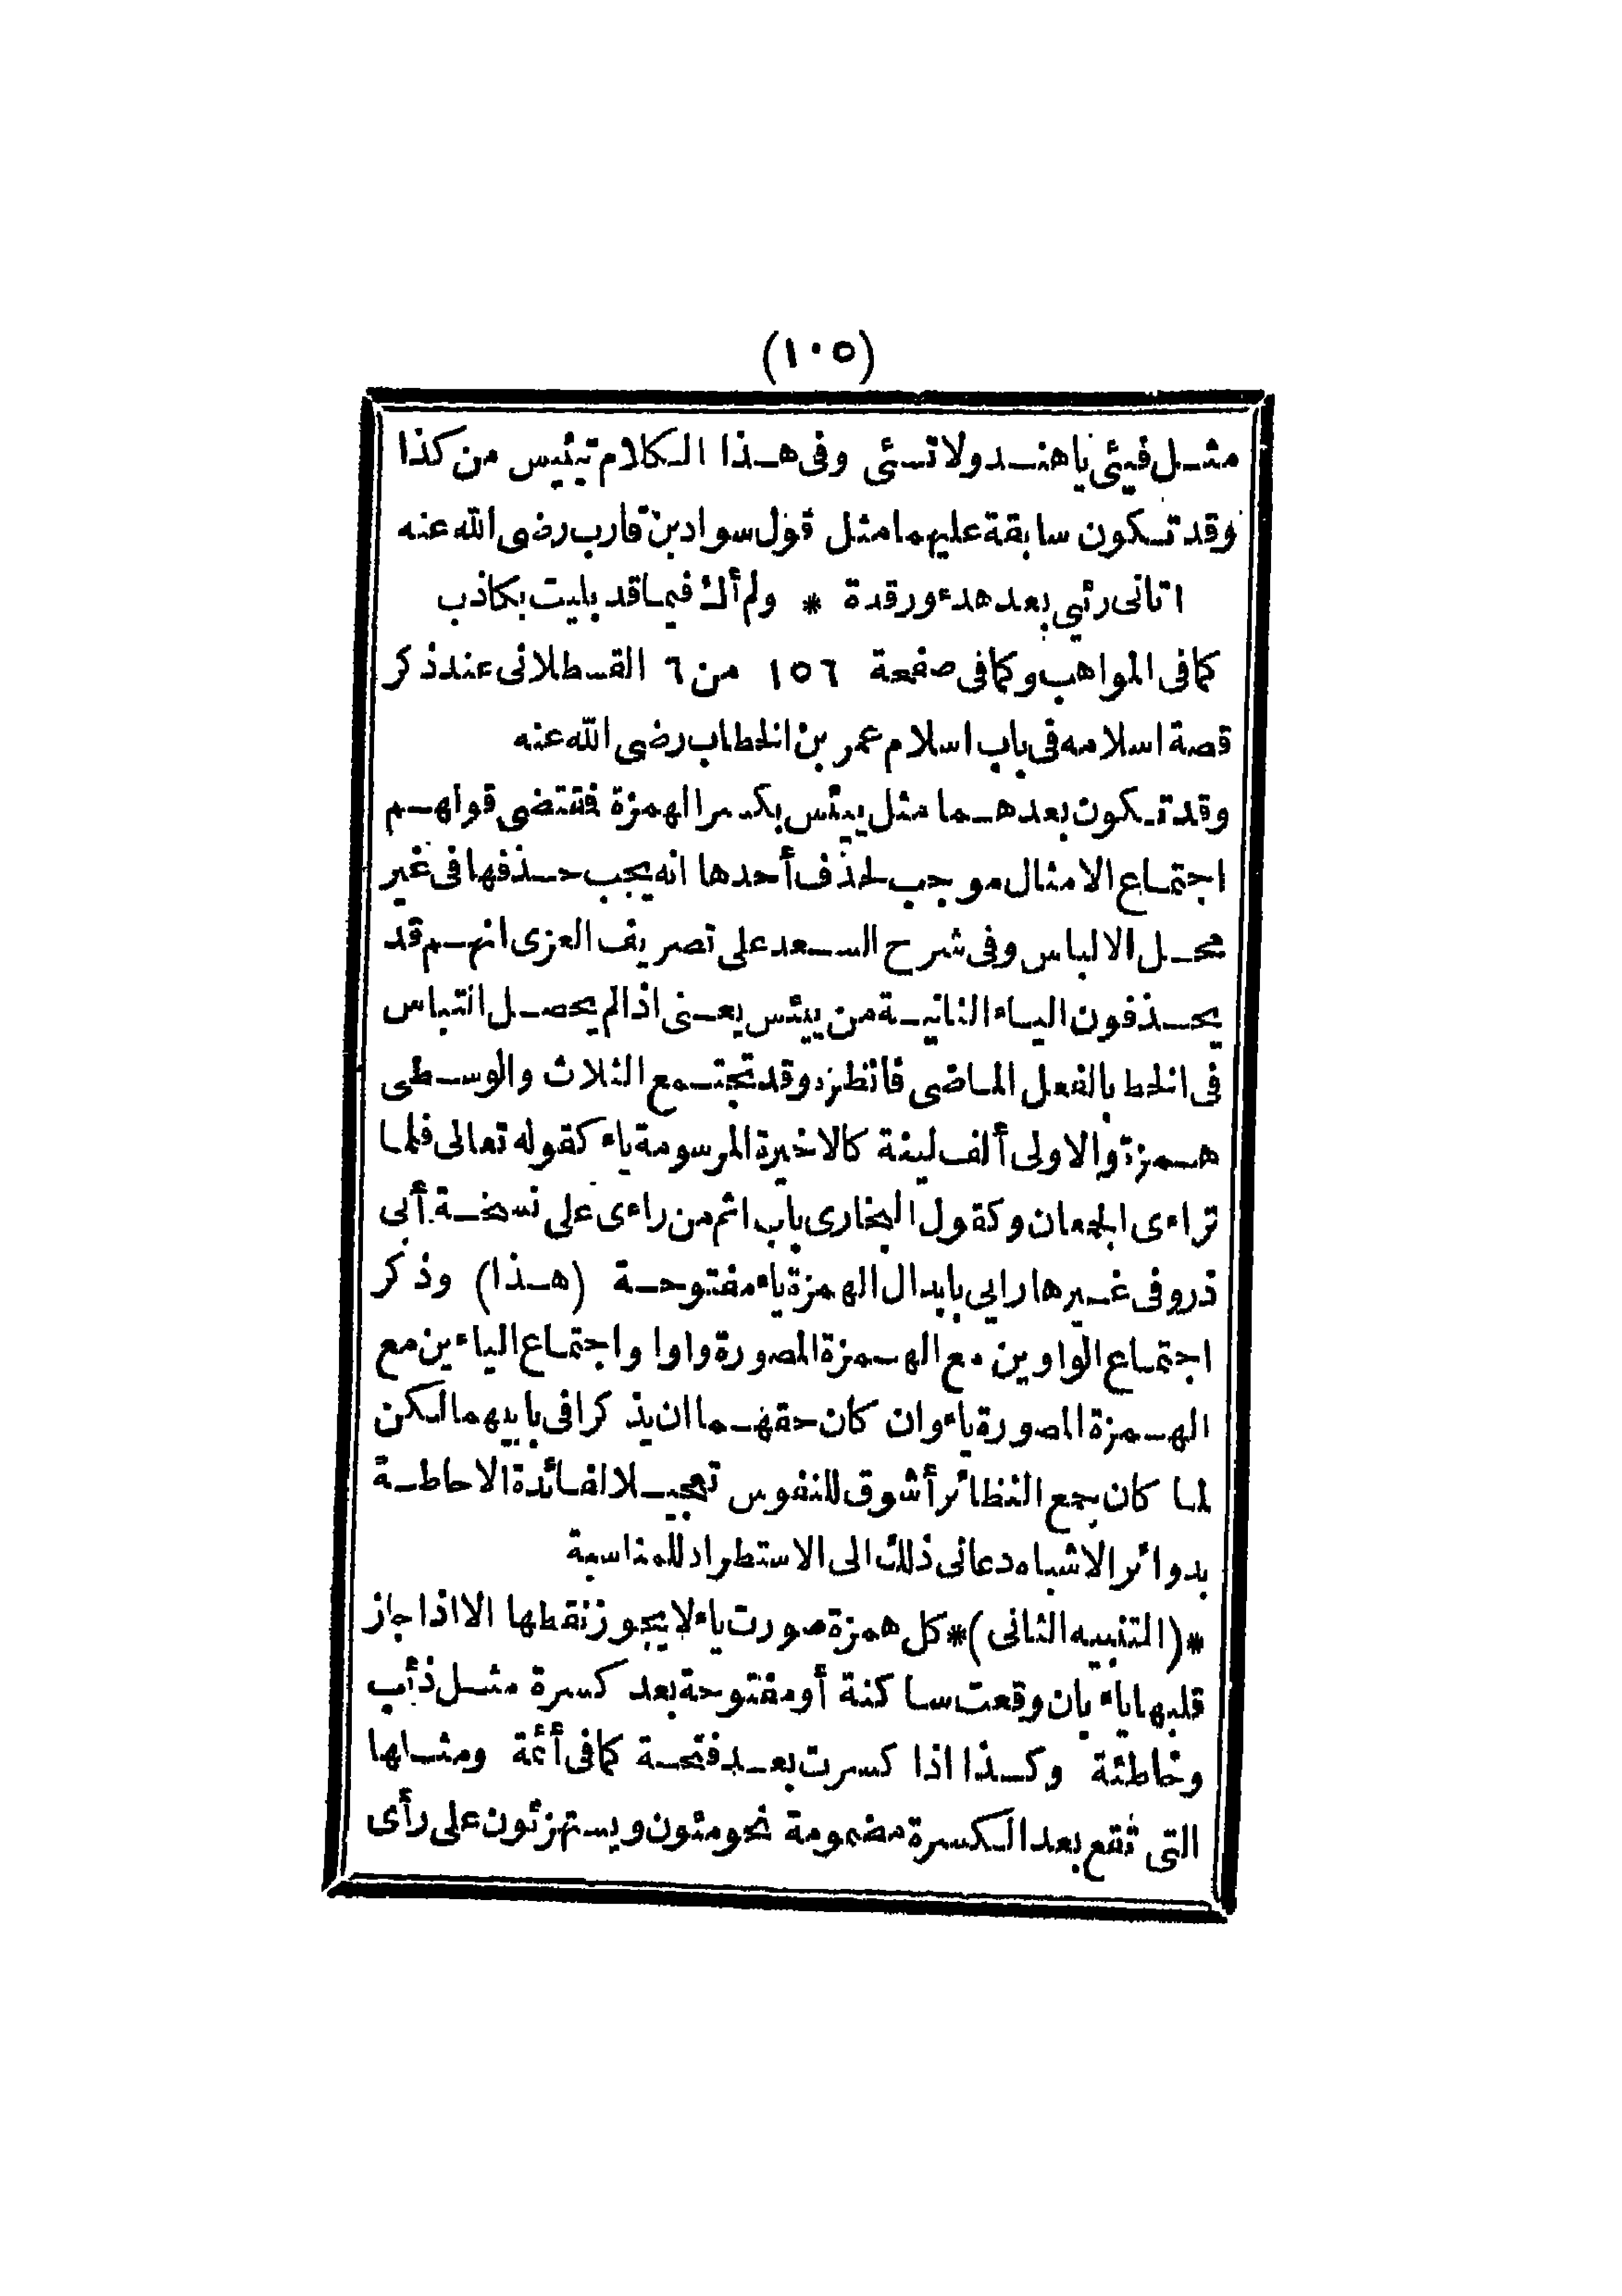 (١٠٥)
مثل فيئى يا هند ولا تسئى وفى هذا الكلام تيئيس من كذا
وقد تكون سابقة عليهما مثل قول سواد بن قارب رضى الله عنه
اتانى رئيي بعد هدء ورقدة * ولم أك فيما قد بليت بكاذب
كما فى المواهب وكما فى صفحة ١٥٦ من ٦ القسطلانى عند ذكر
قصة اسلامه فى باب اسلام عمر بن الخطاب رضى الله عنه
وقد تكون بعدهما مثل ييئس بكسر الهمزة فمقتضى قولهم
اجتماع الامثال موجب لحذف أحدها انه يجب حذفها فى غير
محل الالباس وفى شرح السعد على تصريف العزى انهم قد
يحذفون الياء الثانية من ييئس يعنى اذا لم يحصل التباس
فى الخط بالفعل الماضى فانظره وقد تجتمع الثلاث والوسطى
همزة والاولى ألف لينة كالاخيرة المرسومة ياء كقوله تعالى فلما
تراءى الجمعان وكقول البخارى باب اثم من راءى على نسخة أبى
ذر وفى غيرها رايى بابدال الهمزة ياء مفتوحة (هذا) وذكر
اجتماع الواوين مع الهمزة المصورة واوا واجتماع الياءين مع
الهمزة المصورة ياء وان كان حقهما ان يذكرا فى بابيهما لكن
لما كان جمع النظائر أشوق للنفوس تعجيلا لفائدة الاحاطة
بدوائر الاشباه دعانى ذلك الى الاستطراد للمناسبة
*(التنبيه الثانى)* كل همزة صورت ياء لا يجوز نقطها الا اذا جاز
قلبها ياء بان وقعت ساكنة أو مفتوحة بعد كسرة مثل ذئب
وخاطئة وكذا اذا كسرت بعد فتحة كما فى أئمة ومثلها
التى تقع بعد الكسرة مضمومة نحو مئون ويستهزئون على رأى